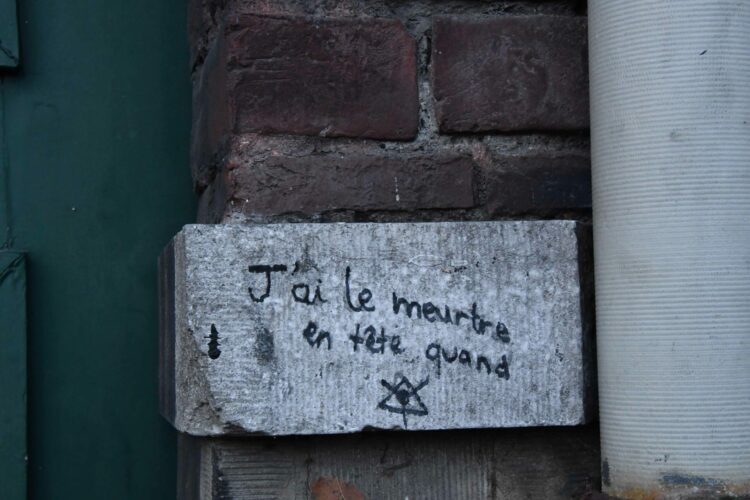 J'ai le meurtre
en tête quand